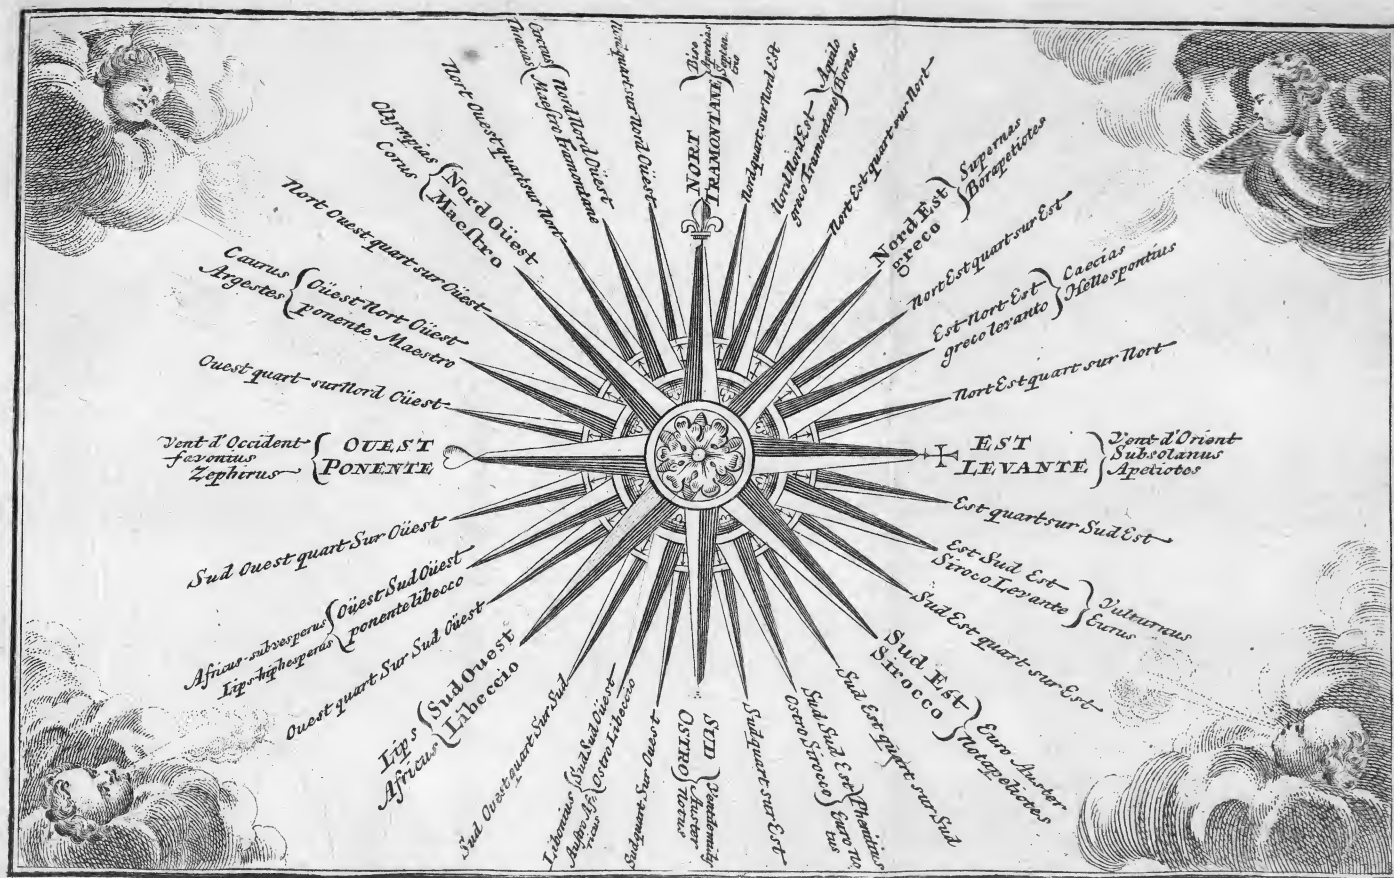 NORT
TRAMONTANE
Nordquart sur Nord Est
Nord Nord Est
greco Tramontano
Aquilo
Boreas
Nort Est quart sur Nort
Nord Est
greco
Supernas
Borapetiotes
Nort Est quart sur Est
Est Nort Est
greco levanto
Caecias
Hellespontius
Nort Est quart sur Nort
EST
LEVANTE
Vent d'Orient
Subsolanus
Apetiotes
Est quart sur Sud Est
Est Sud Est
Siroco Levante
Vulturnus
Eurus
Sud Est quart sur Est
Sud Est
Sirocco
Euro Auster
Notapeliotes
Sud Est quart sur Sud
Sud Sud Est
Ostro Sirocco
Phenitius
Euro No
tus
Sudquart sur Est
SUD
OSTRO
Auster
Notus
Sudquart Sur Ouest
Sud Sud Oüest
Ostro Libeccio
Libonius
Austro Af
ricus
Sud Ouest quart Sur Sud
Sud Ouest
Libeccio
Lips
Africus
Ouest quart Sur Sud Oüest
Oüest Sud Oüest
ponente libecco
Africus subvesperus
Sud Ouest quart Sur Oüest
OUEST
PONENTE
Vent d'Occident
favonius
Zephirus
Ouest quart sur Nord Oüest
Oüest Nort Oüest
ponente Maestro
Caurus
Argestes
Nort Ouest quart sur Oüest
Nord Oüest
Maestro
Olympias
Corus
Nort Ouest quart sur Nort
Nord Nord Oüest
Maestro Tramontane
Circius
Thracias
Nordquart sur Nord Oüest